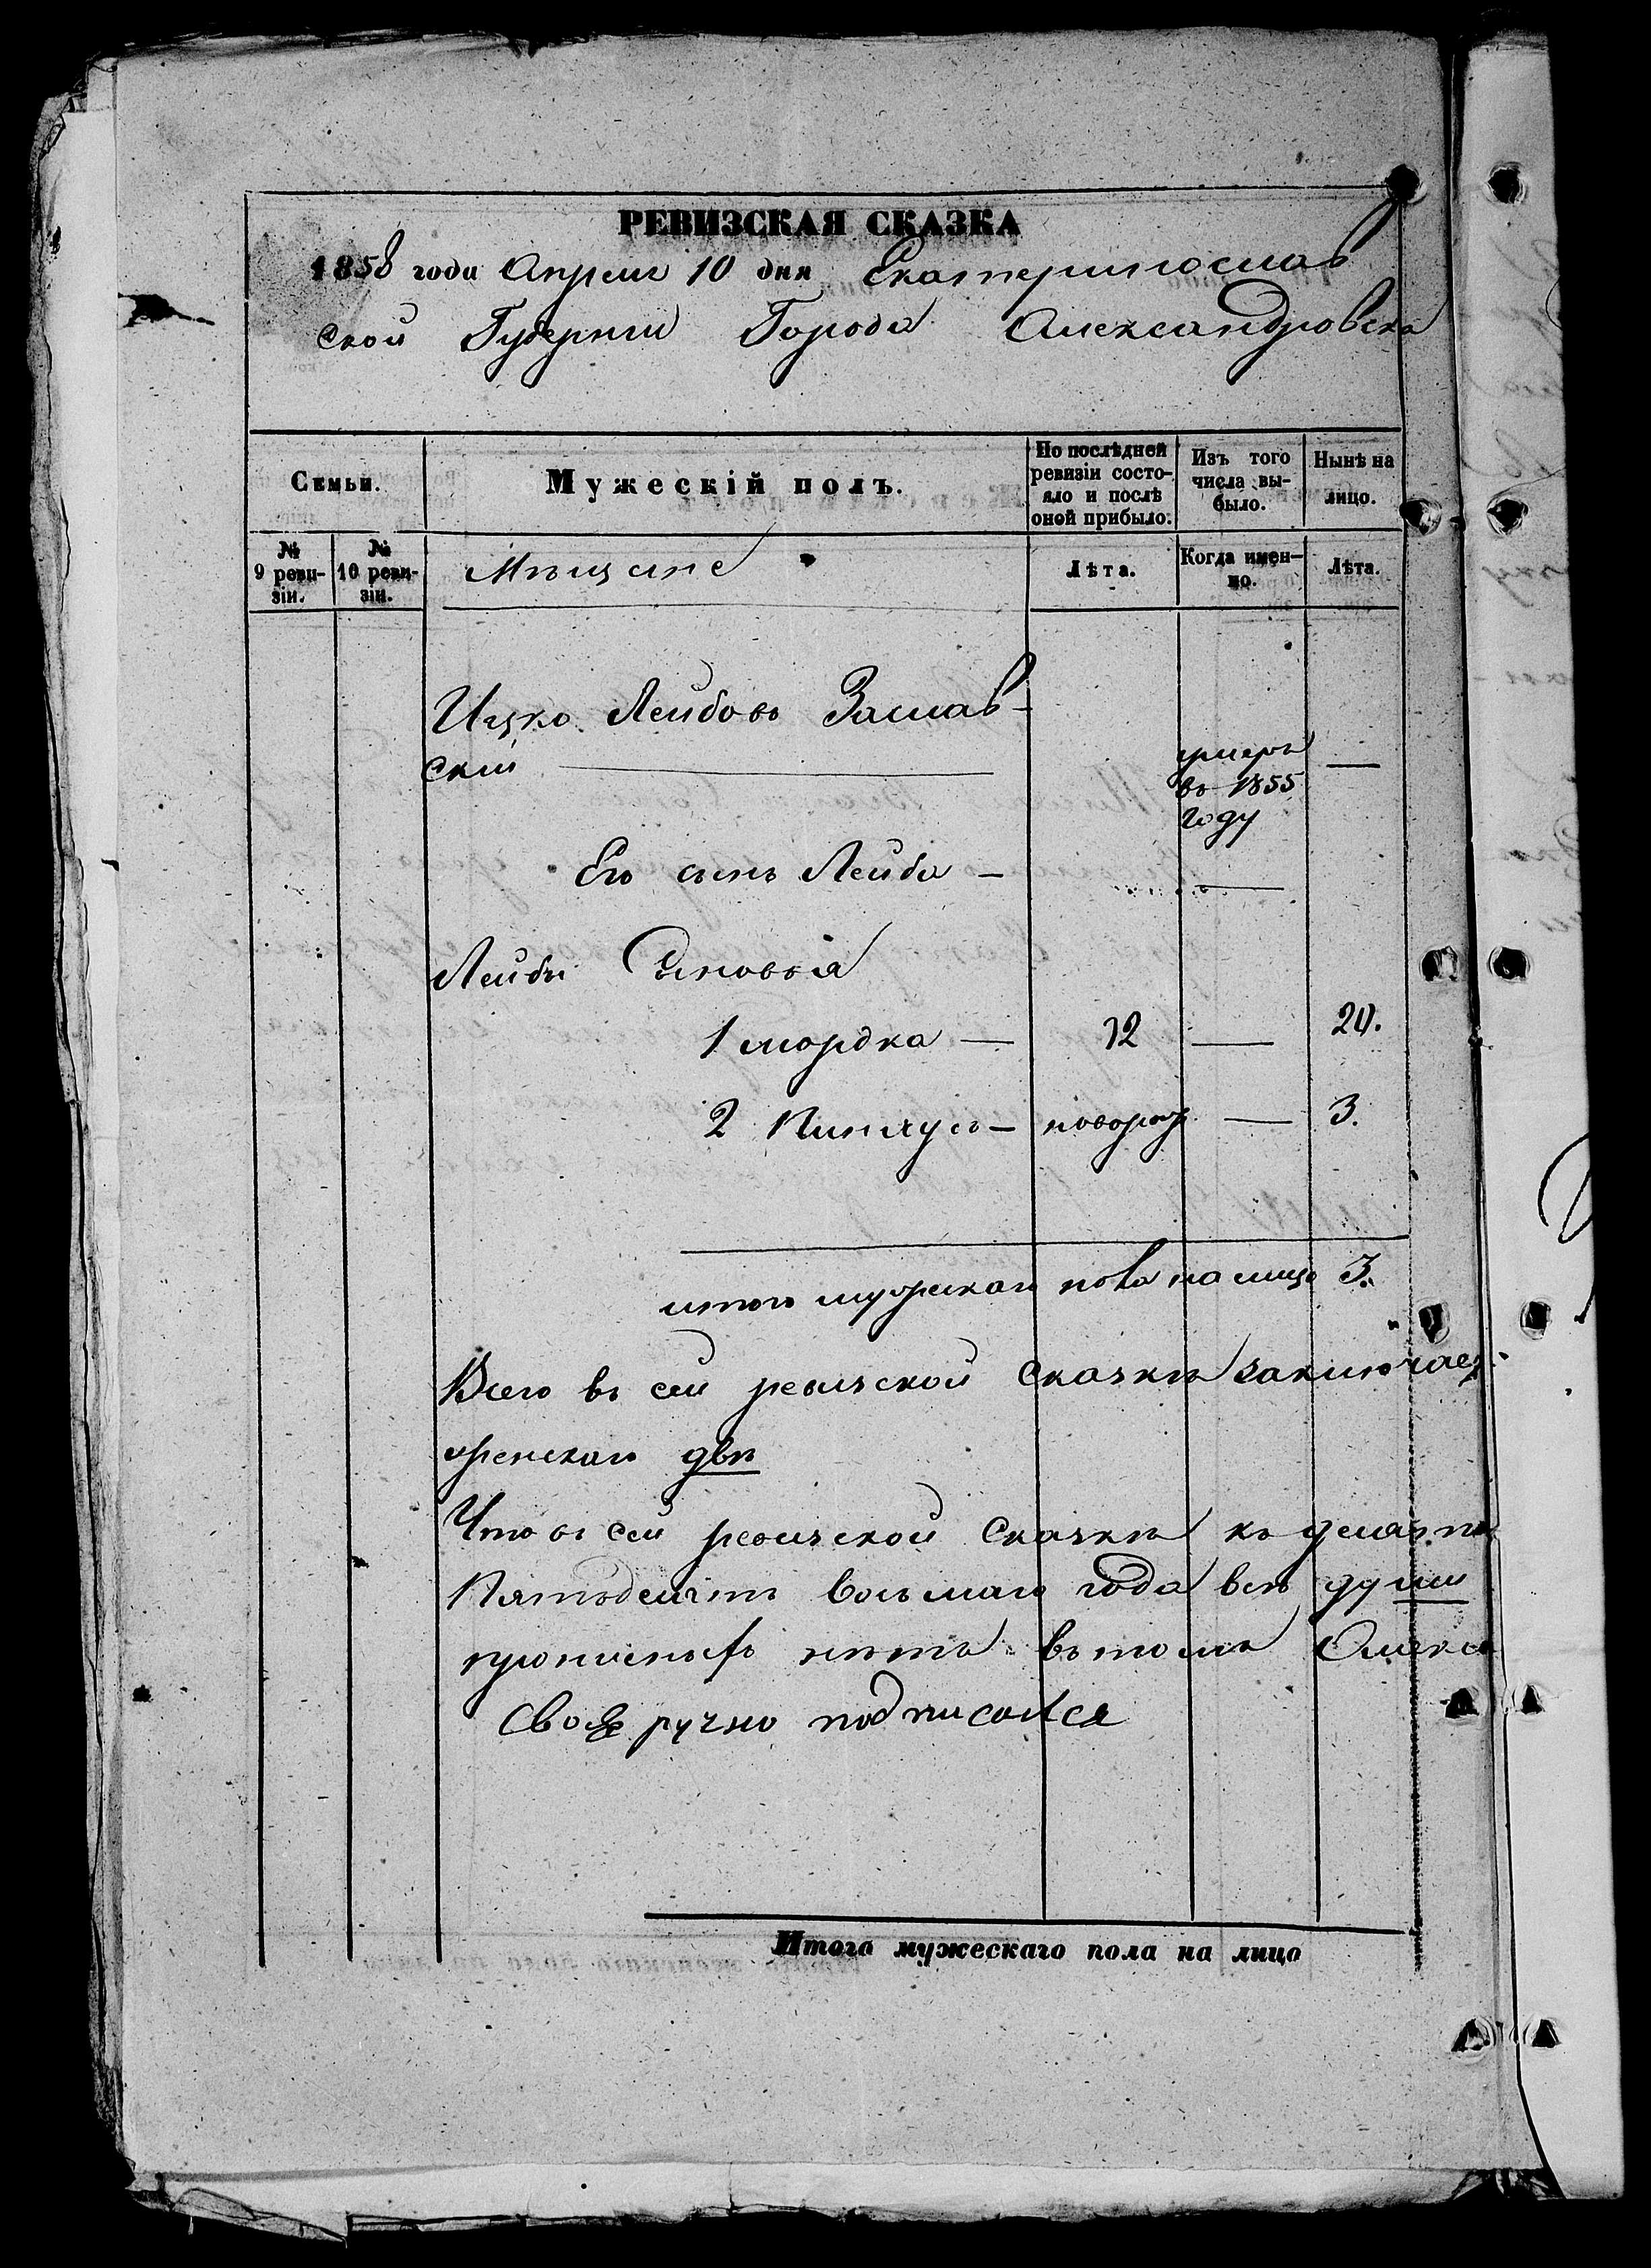 РЕВИЗСКАЯ СКАЗКА
1858 года Апреля 10 дня Екатеринослав
ской Губерніи Города Александровска
Семьи.
Мужескій полъ.
По послѣдней ревизіи состояло и послѣ оной прибыло.
Изъ того числа выбыло.
Нынѣ на лицо.
№ 9 ревизіи.
№ 10 ревизіи.
Мѣщане
Лѣта.
Когда именно.
Лѣта.
Ицко Лейбовъ Заслав-
скій
умеръ
въ 1855
году
—
Его сынъ Лейба —
—
Лейбы Сыновья
1 мордка — 12 — 20.
2 Пинхусъ — новорож — 3.
итого мужскаго пола на лицо 3.
Всего въ сей ревизской Сказкѣ заключает
женскаго двѣ
Что въ сей ревизской Сказкѣ къ
Пятьдесятъ восьмаго года всѣ души
нѣтъ въ томъ Алекса
Своеручно подписался
Итого мужескаго пола на лицо